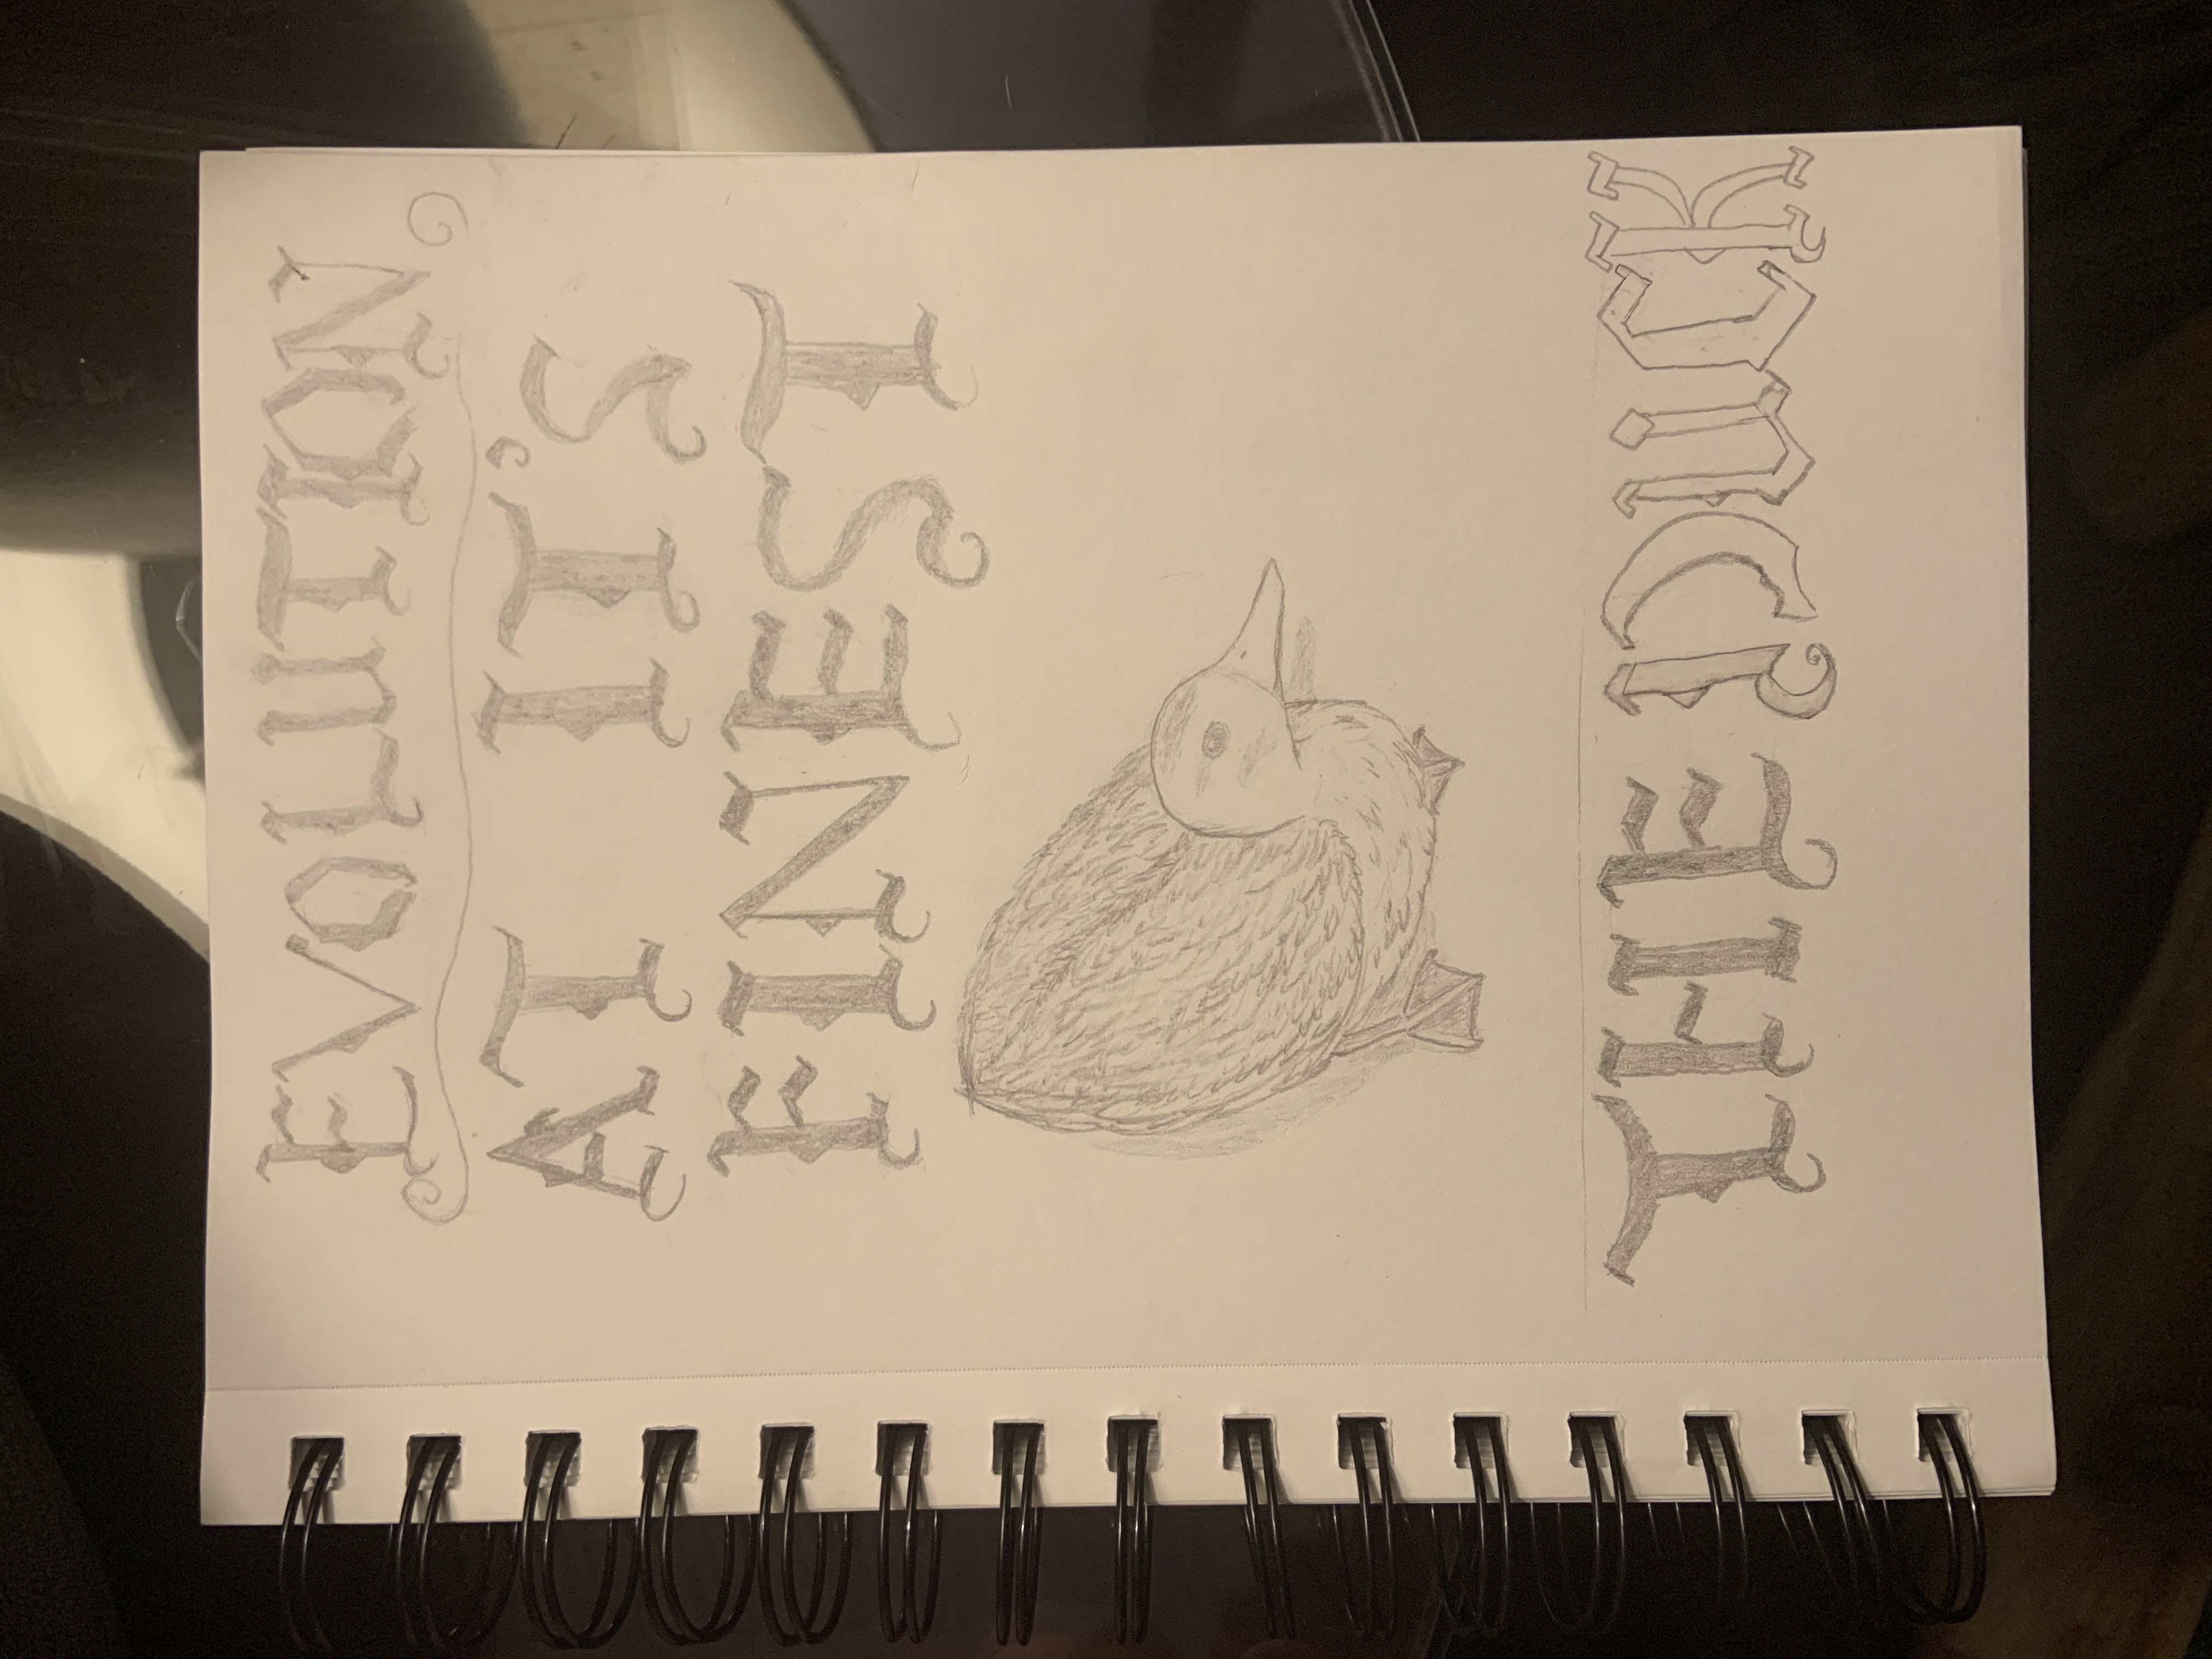 EVOLUTION
AT IT'S
FINEST
THE DUCK